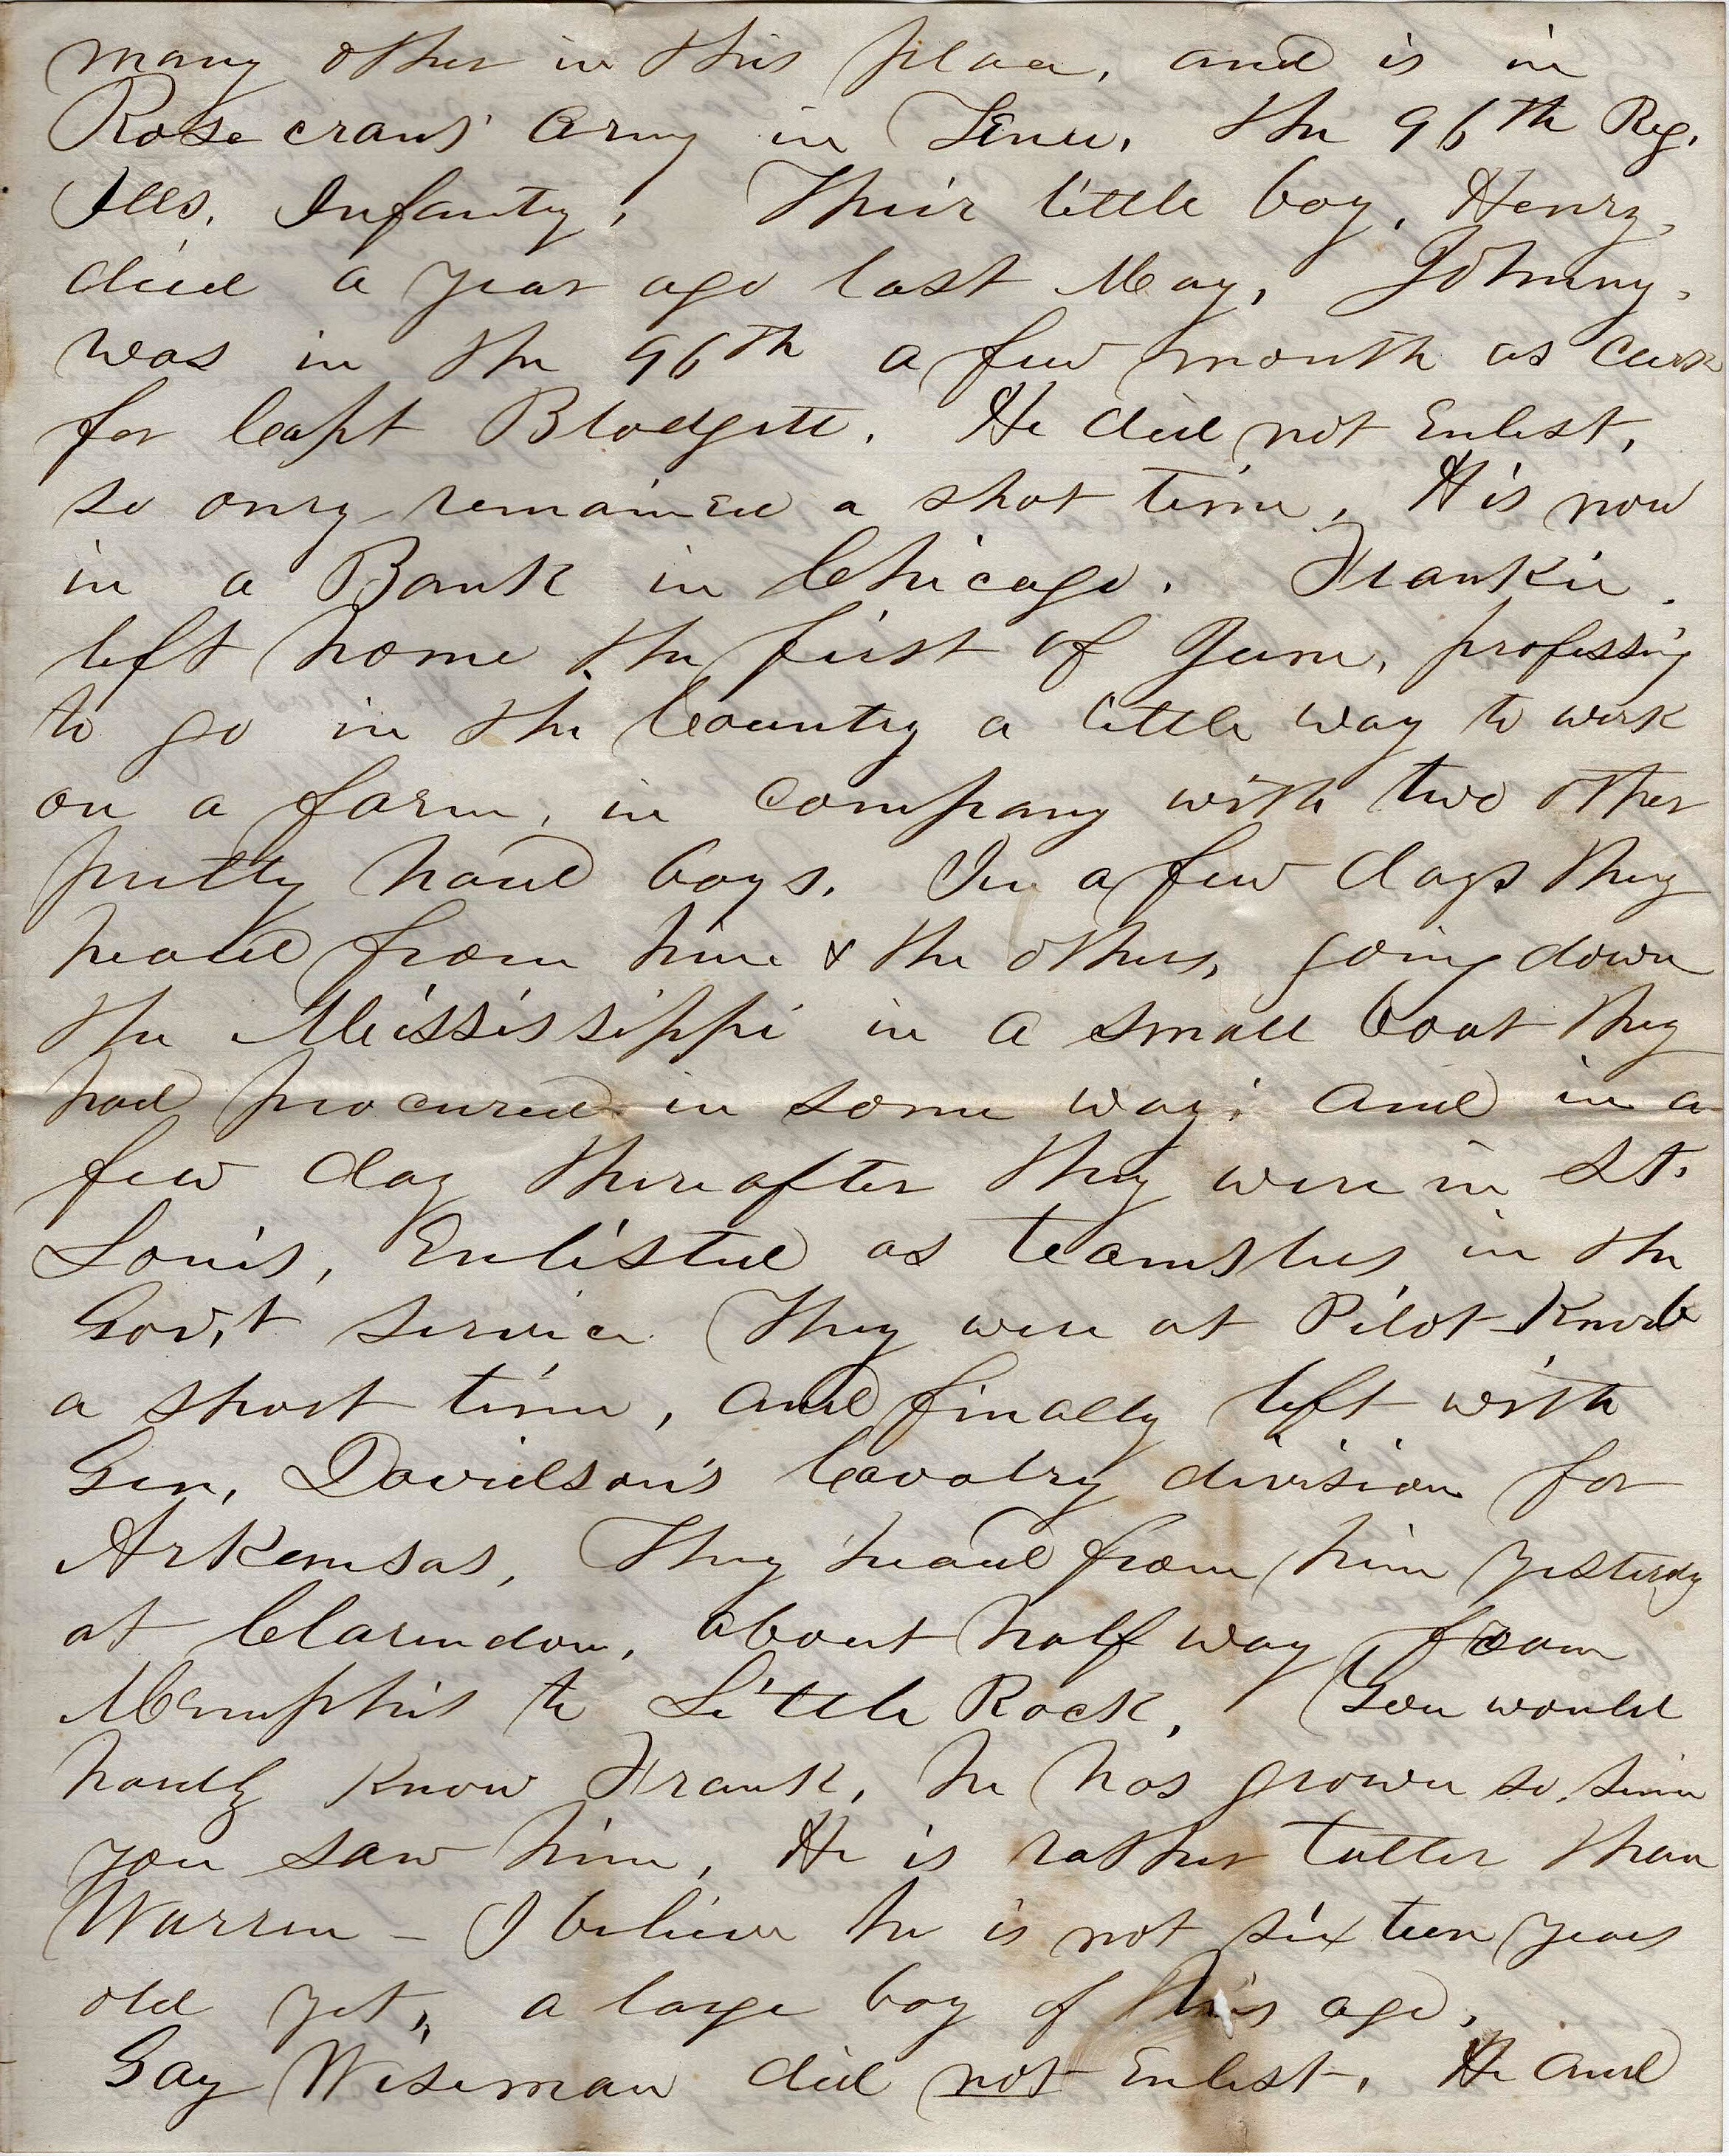 many other in this place, and is in
Rosecrans' Army in Tenn. the 96th Reg.
Ills. Infanty. Their little boy, Henry,
died a year ago last May, Johnny,
was in the 96th a few month as
for Capt Blodgett. He did not Enlist,
so only remained a shot time. H is now
in a Bank in Chicago. Frankie,
left home the first of June, professing
to go in the Country a little way to work
on a farm, in company with two other
pretty hard boys. In a few days they
heard from him & the others, going down
the Mississippi in a small boat they
had procured in some way; and in a
few day thereafter they were in St.
Louis, Enlisted as teamsters in the
Gov,t service They were at Pilot Knob
a short time, and finally left with
Gen, Davidson's Cavalry division for
Arkansas, They heard from him yesterdy
at Clarendon, about half way from
Memphis to Little Rock. You would
hardly know Frank, he has grown so since
you saw him, He is rather taller than
Warren - I believe he is not sixteen years
old yet, a large boy of his age,
Gay Wiseman did not Enlist, He and